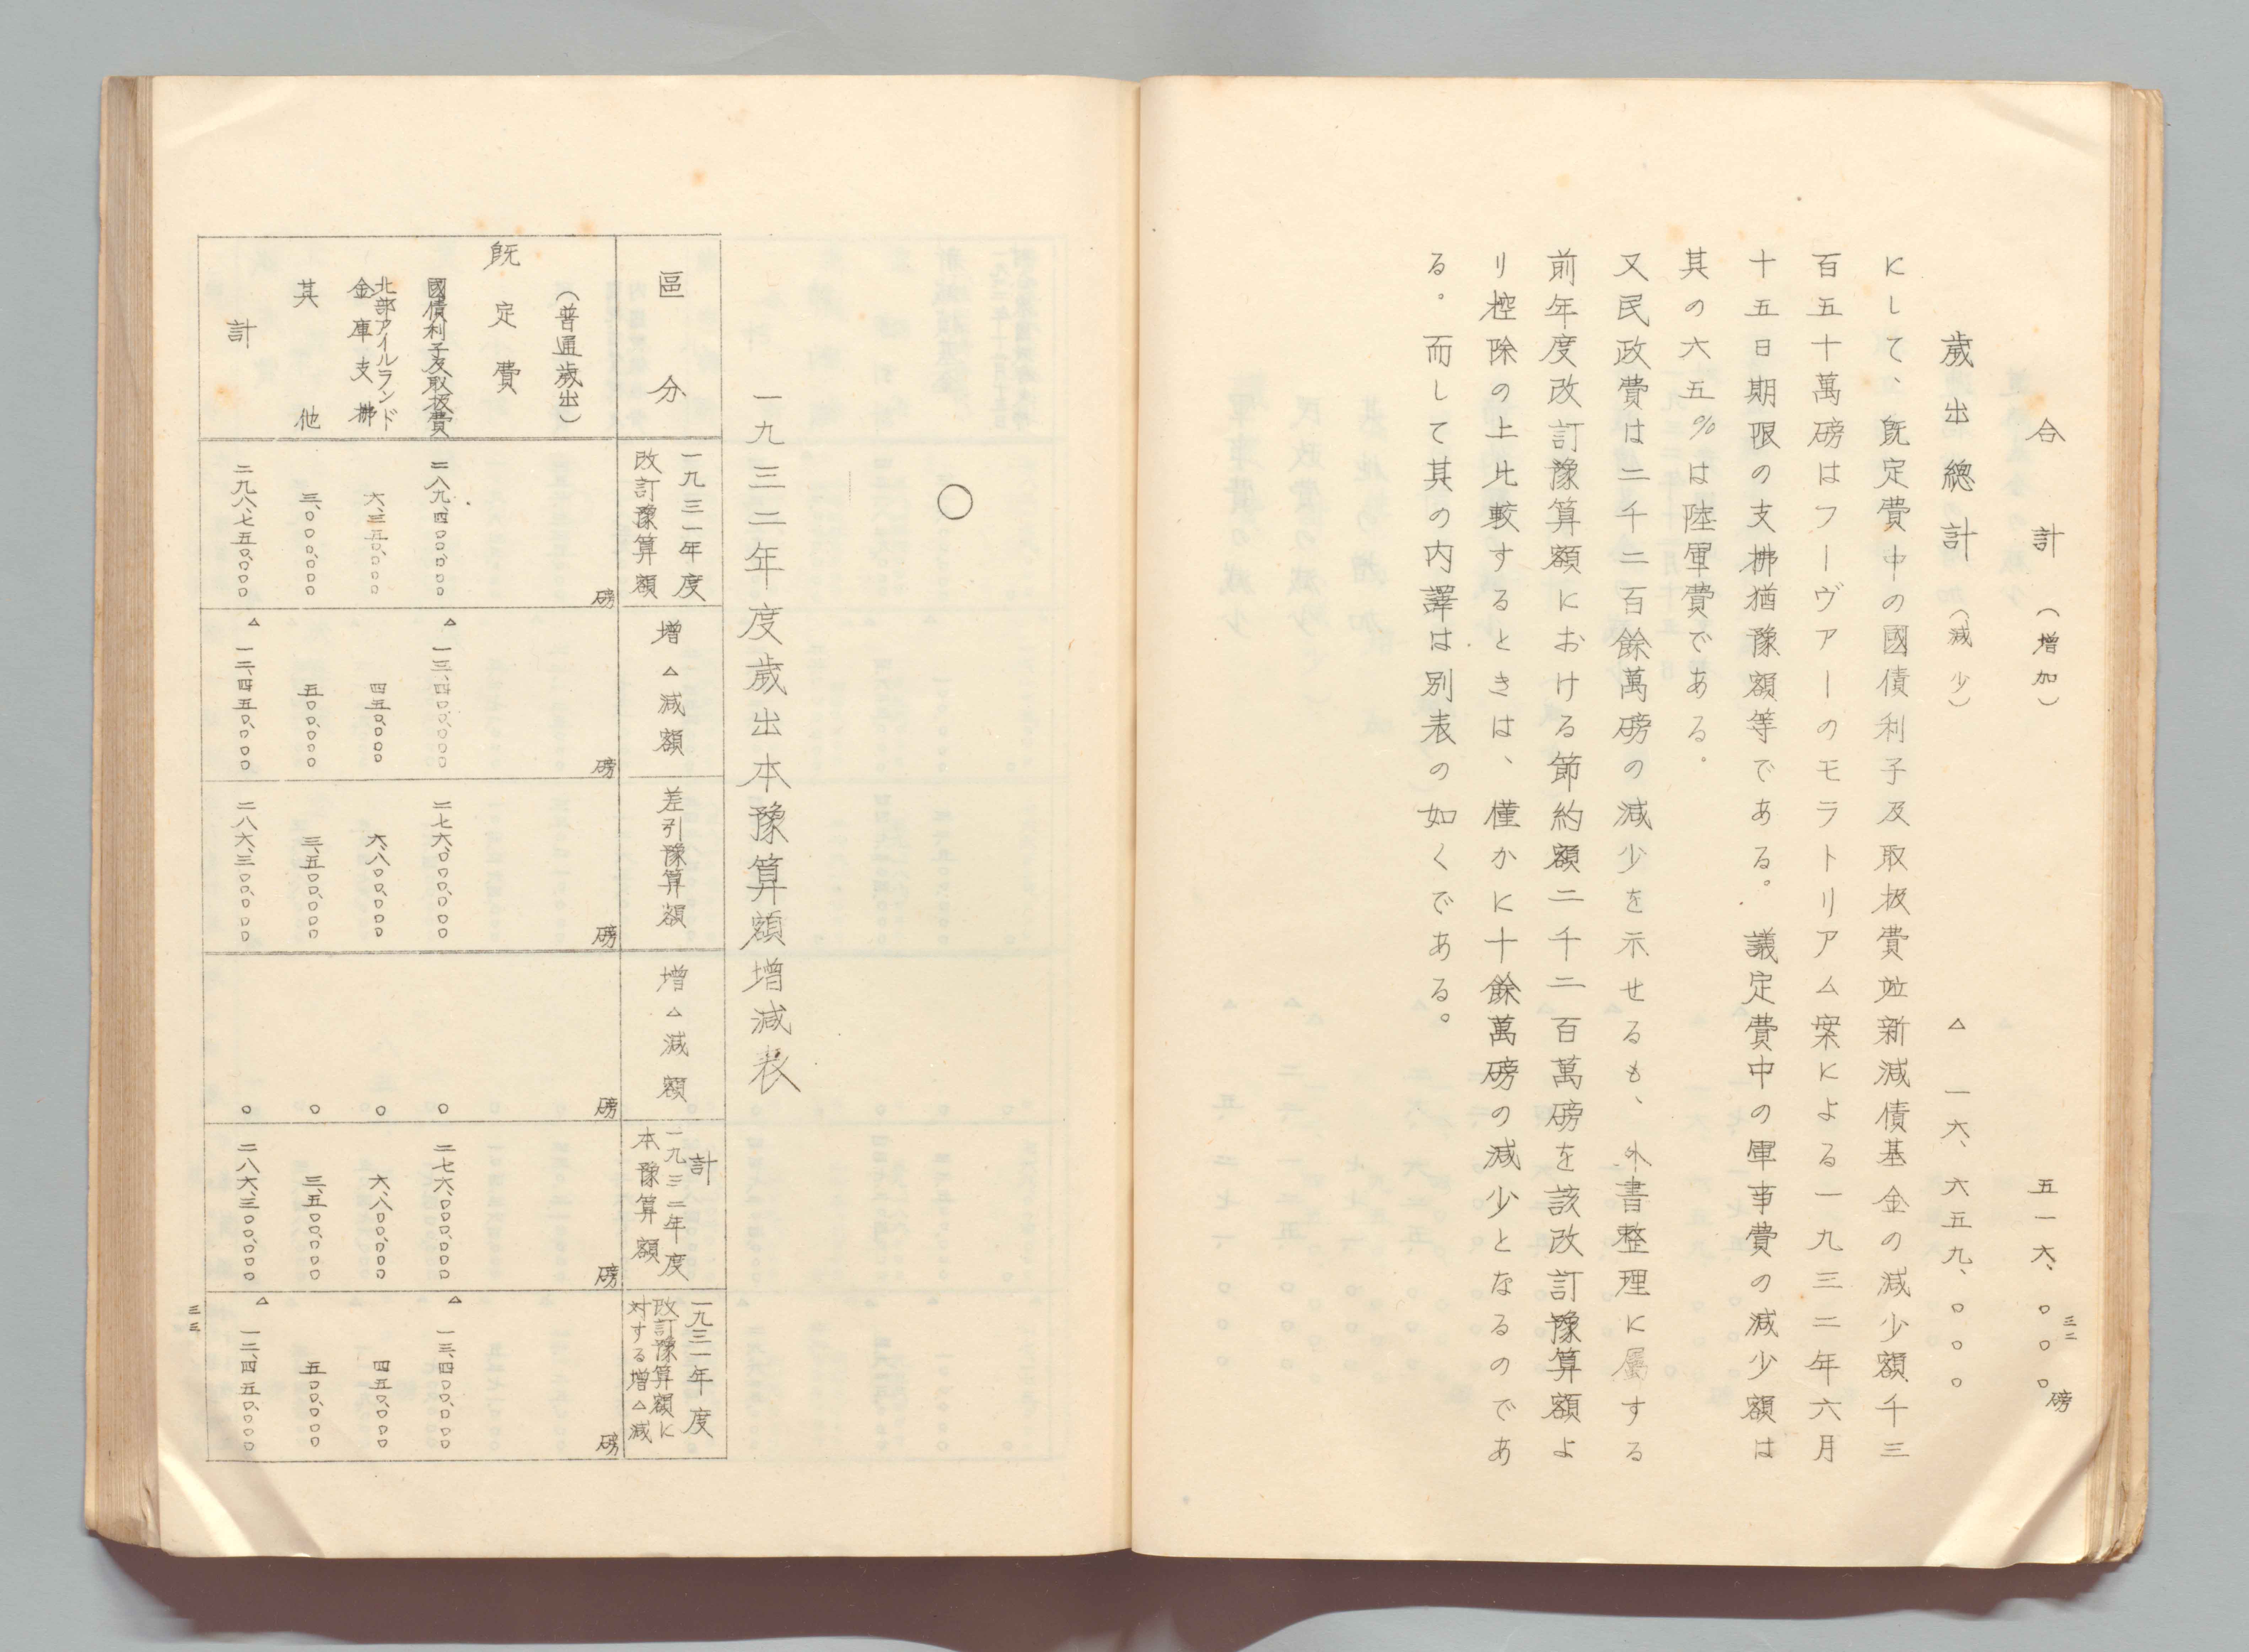 合計（增加） 五一六、〇〇〇磅
歲出總計（減少） △一六、六五九、〇〇〇
にして、旣定費中の國債利子及取扱費竝新減債基金の減少額千三
百五十萬磅はフーヴァーのモラトリアム案による一九三二年六月
十五日期限の支拂猶豫額等である。議定費中の軍事費の減少額は
其の六五％は陸軍費である。
又民政費は二千二百餘萬磅の減少を示せるも、外書整理に屬する
前年度改訂豫算額における節約額二千二百萬磅を該改訂豫算額よ
り控除の上比較するときは、僅かに十餘萬磅の減少となるのであ
る。而して其の内譯は別表の如くである。
三二
〇
一九三二年度歲出本豫算額增減表
區分
一九三一年度
改訂豫算額
增△減額
差引豫算額
增△減額
計
一九三二年度
本豫算額
一九三一年度
改訂豫算額に
対する增△減
（普通歲出）
磅 磅 磅 磅 磅 磅
旣定費
國債利子及取扱費 二八九、四〇〇、〇〇〇 △一三、四〇〇、〇〇〇 二七六、〇〇〇、〇〇〇 〇 二七六、〇〇〇、〇〇〇 △一三、四〇〇、〇〇〇
北部アイルランド
金庫支拂 六、三五〇、〇〇〇 四五〇、〇〇〇 六、八〇〇、〇〇〇 〇 六、八〇〇、〇〇〇 四五〇、〇〇〇
其他 三、〇〇〇、〇〇〇 五〇〇、〇〇〇 三、五〇〇、〇〇〇 〇 三、五〇〇、〇〇〇 五〇〇、〇〇〇
計 二九八、七五〇、〇〇〇 △一二、四五〇、〇〇〇 二八六、三〇〇、〇〇〇 〇 二八六、三〇〇、〇〇〇 △一二、四五〇、〇〇〇
三三